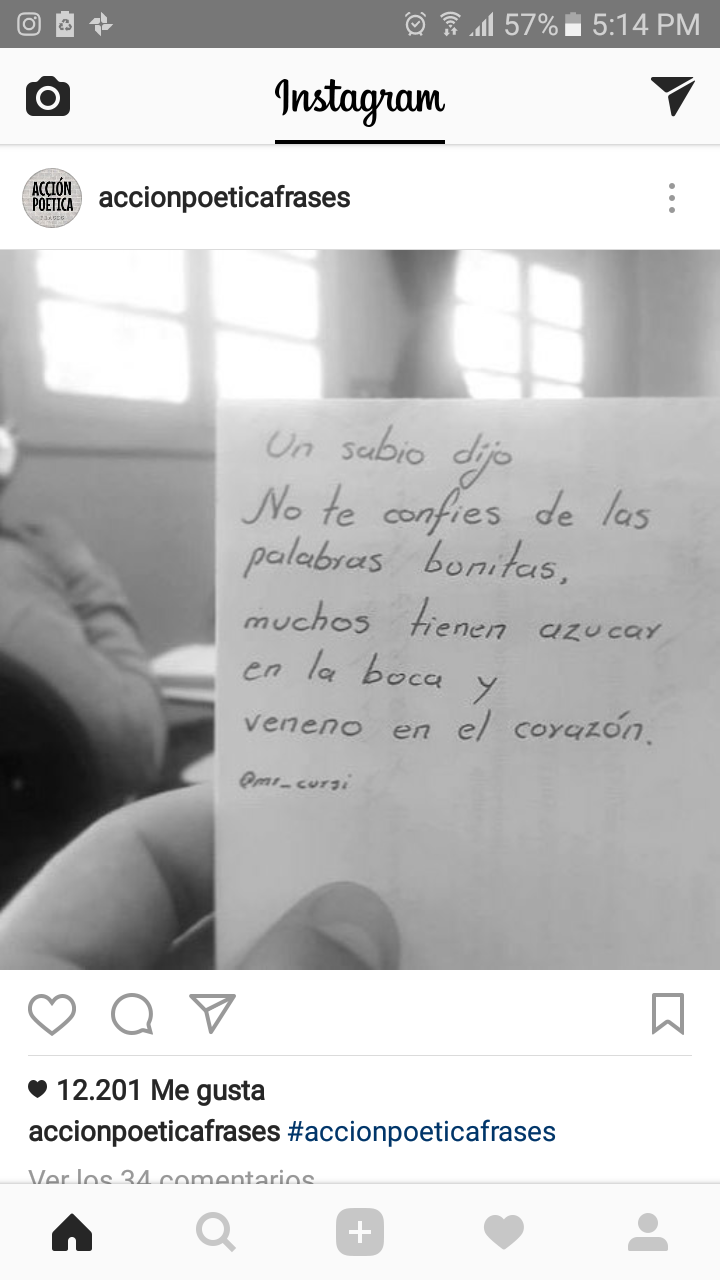 57% 5:14 PM
Instagram
ACCIÓN
POÉTICA
FRASES
accionpoeticafrases
Un sabio dijo
No te confies de las
palabras bonitas,
muchos tienen azucar
en la boca y
veneno en el corazón.
@mr_cursi
12.201 Me gusta
accionpoeticafrases #accionpoeticafrases
Ver los 34 comentarios